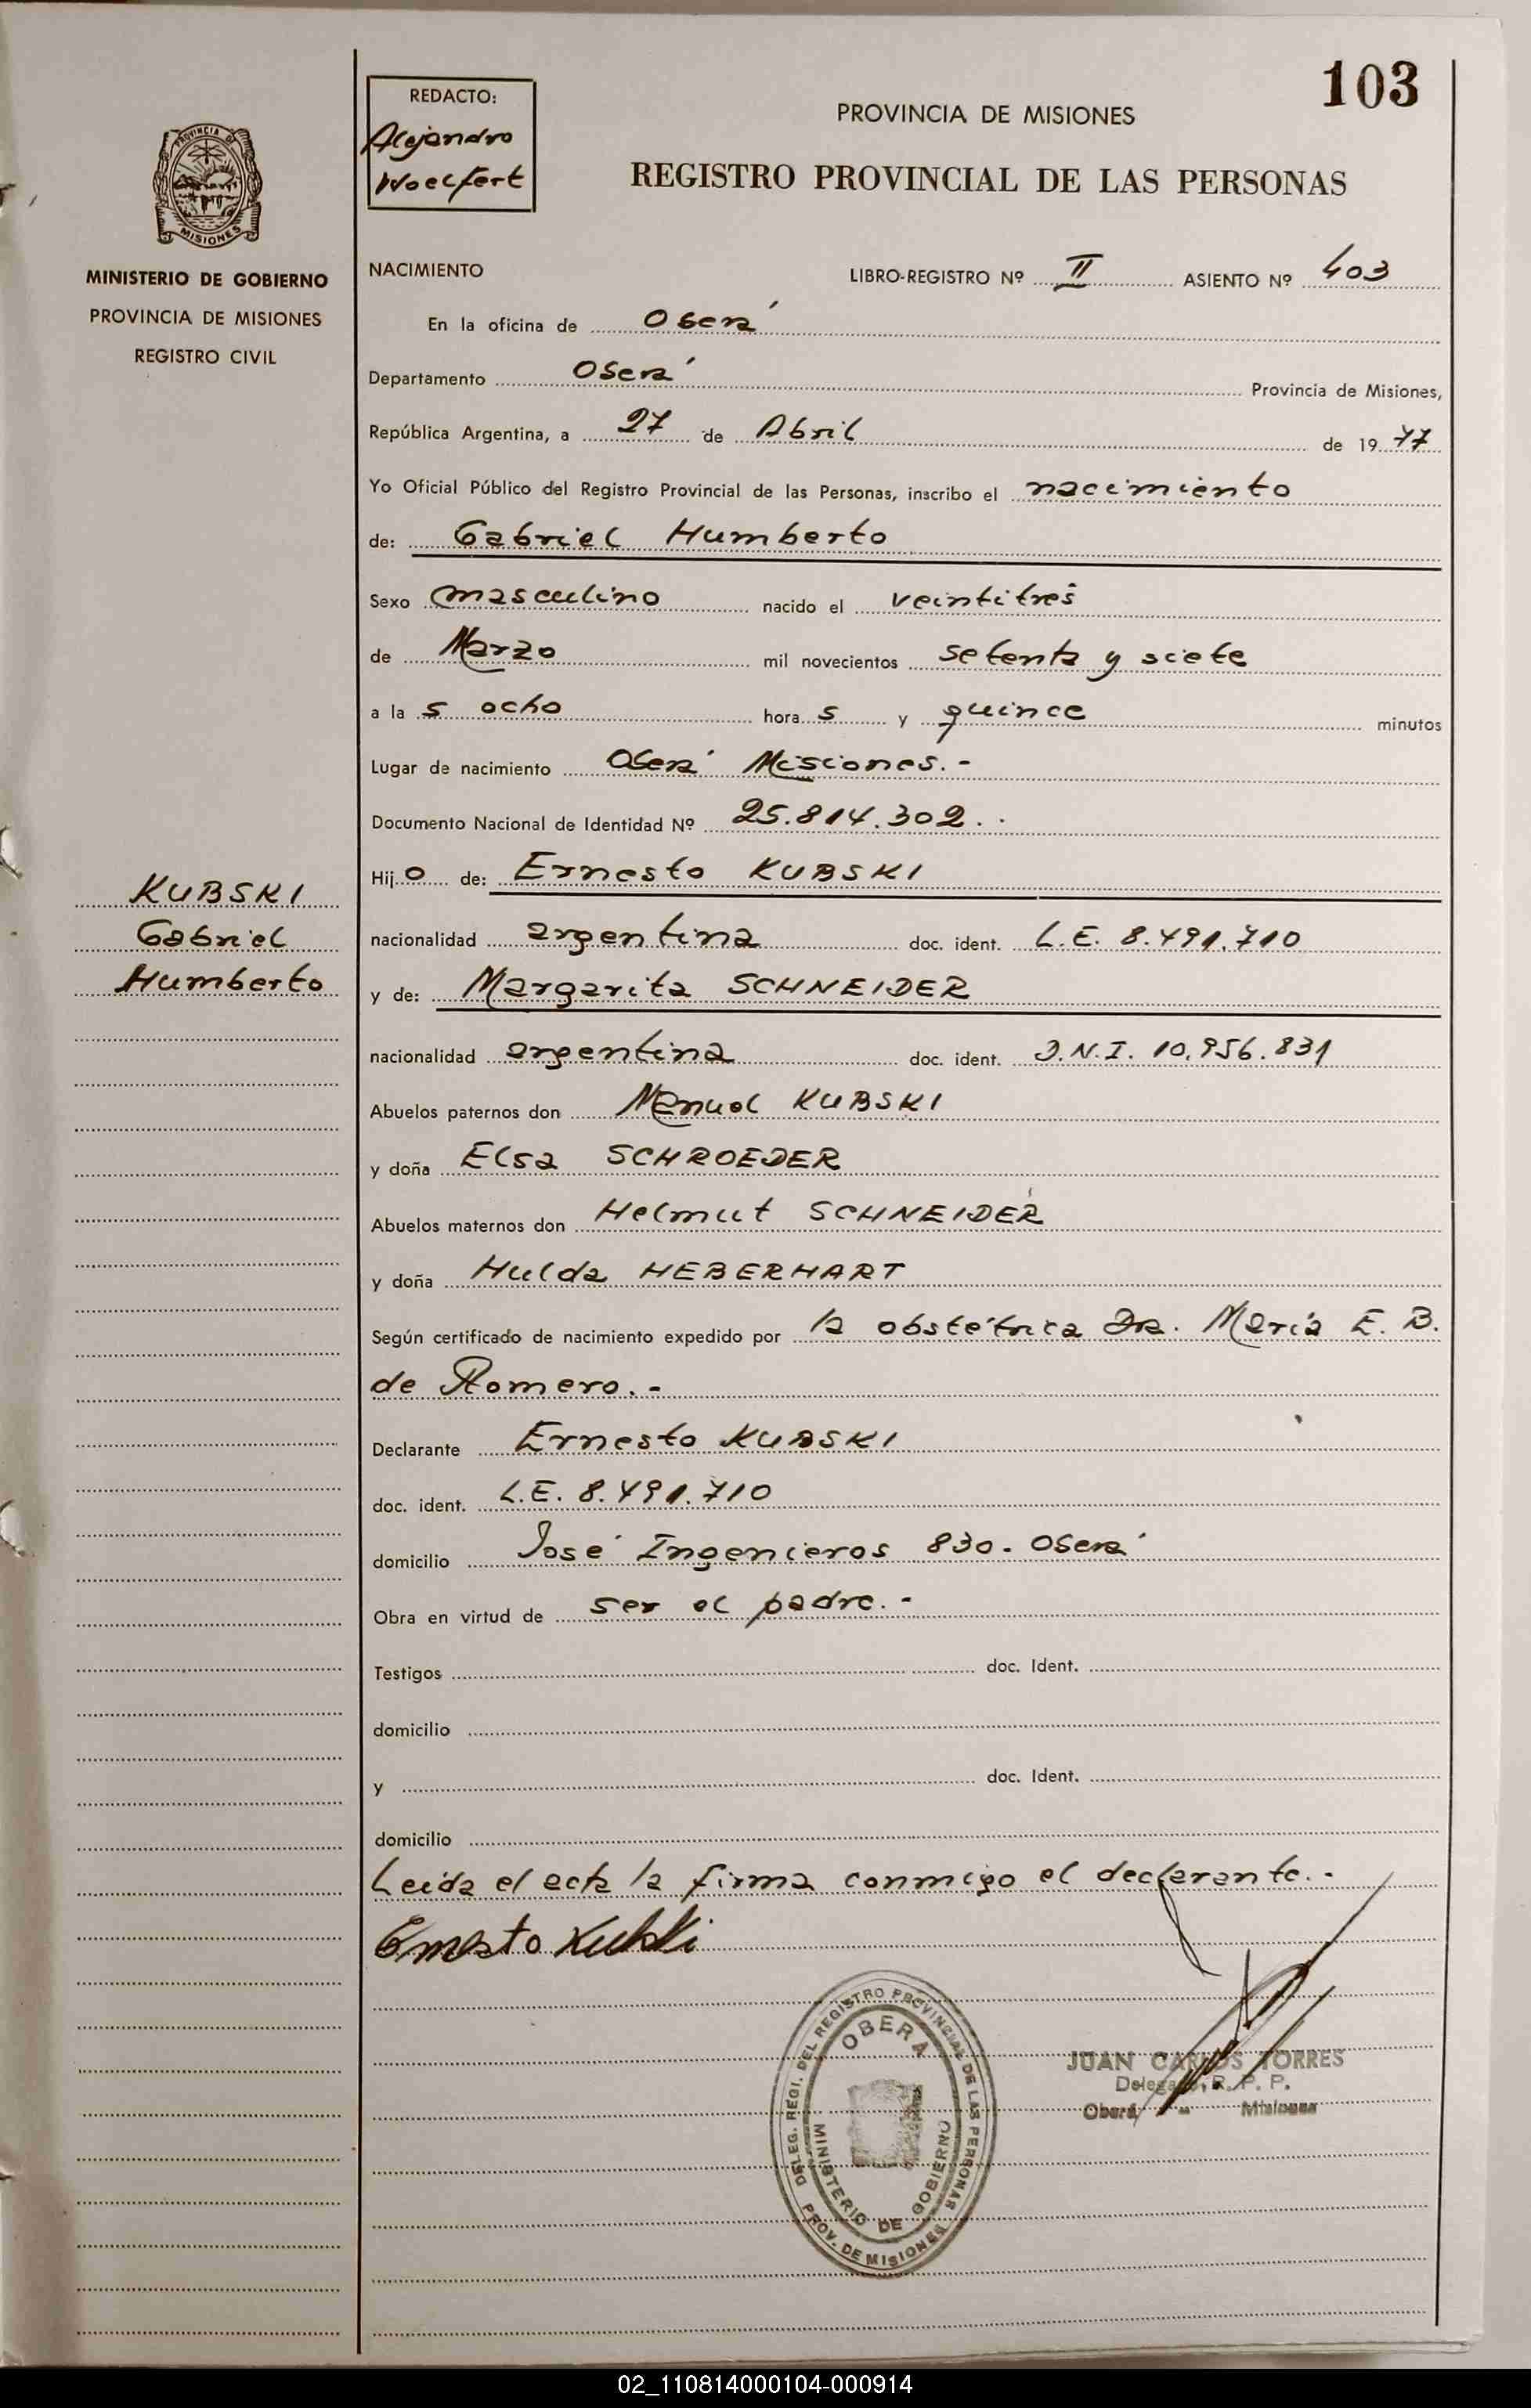 103
REDACTO:
Alejandro
Woelfert
PROVINCIA DE MISIONES
REGISTRO PROVINCIAL DE LAS PERSONAS
PROVINCIA DE
MISIONES
MINISTERIO DE GOBIERNO
PROVINCIA DE MISIONES
REGISTRO CIVIL
NACIMIENTO LIBRO-REGISTRO Nº II ASIENTO Nº 403
En la oficina de Oberá
Departamento Oberá Provincia de Misiones,
República Argentina, a 27 de Abril de 1977
Yo Oficial Público del Registro Provincial de las Personas, inscribo el nacimiento
de: Gabriel Humberto
Sexo masculino nacido el veintitrés
de Marzo mil novecientos setenta y siete
a la s ocho hora s y quince minutos
Lugar de nacimiento Oberá Misiones.-
Documento Nacional de Identidad Nº 25.814.302..
Hij o de: Ernesto KUBSKI
KUBSKI
Gabriel
Humberto
nacionalidad argentina doc. ident. L.E. 8.491.710
y de: Margarita SCHNEIDER
nacionalidad argentina doc. ident. D.N.I. 10.956.831
Abuelos paternos don Manuel KUBSKI
y doña Elsa SCHROEDER
Abuelos maternos don Helmut SCHNEIDER
y doña Hulda HEBERHART
Según certificado de nacimiento expedido por la obstétrica Dra. María E. B.
de Romero.-
Declarante Ernesto KUBSKI
doc. ident. L.E. 8.491.710
domicilio José Ingenieros 830. Oberá
Obra en virtud de ser el padre.-
Testigos doc. Ident.
domicilio
y doc. Ident.
domicilio
Leída el acta la firma conmigo el declarante.-
Ernesto Kubski
DELEG. REGI. DEL REGISTRO PROVINCIAL DE LAS PERSONAS
OBERA
MINISTERIO DE GOBIERNO
PROV. DE MISIONES
JUAN CARLOS TORRES
Delegado, R. P. P.
Oberá - Misiones
02_110814000104-000914